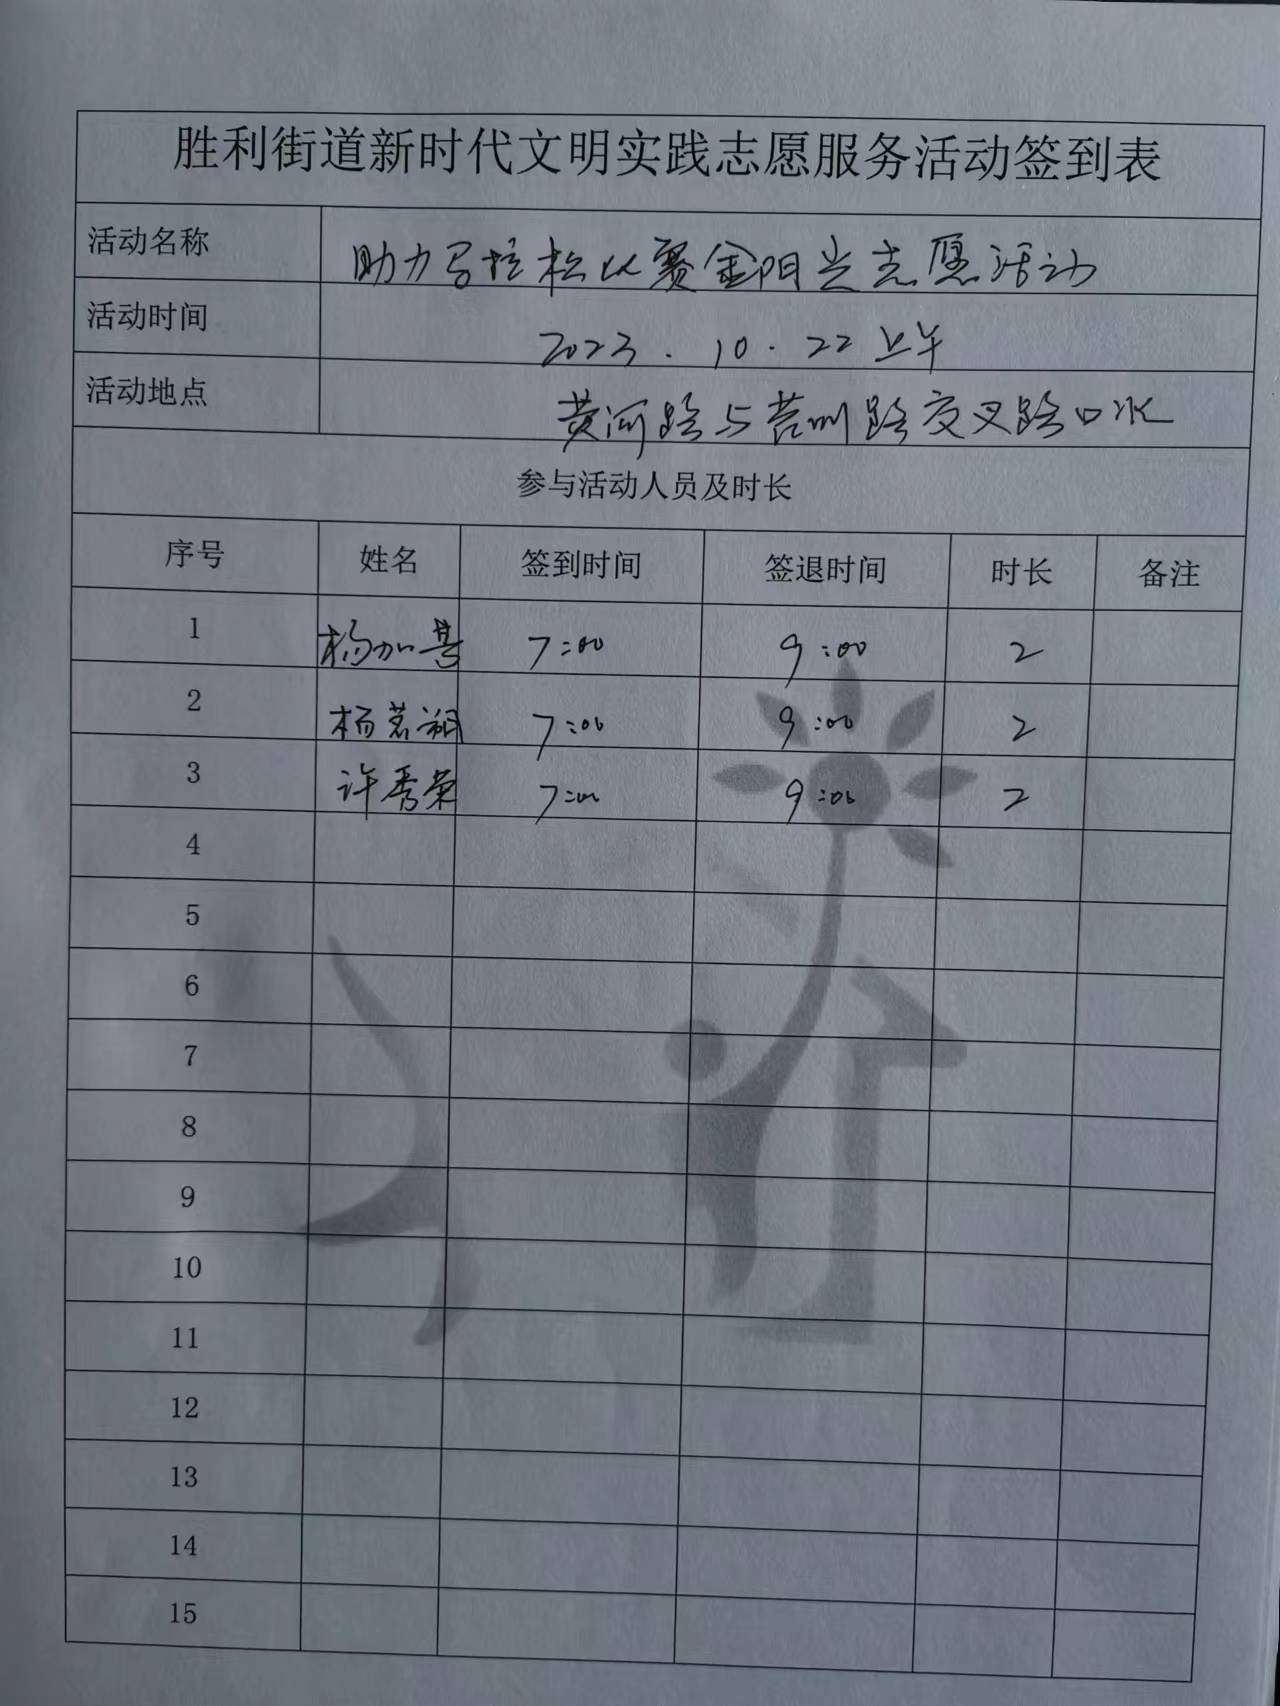 胜利街道新时代文明实践志愿服务活动签到表
活动名称 助力马拉松比赛金阳光志愿活动
活动时间 2023.10.22上午
活动地点 黄河路与莒州路交叉路口北
参与活动人员及时长
序号 姓名 签到时间 签退时间 时长 备注
1 杨加 7:00 9:00 2
2 杨茗 7:00 9:00 2
3 许秀荣 7:00 9:00 2
4
5
6
7
8
9
10
11
12
13
14
15